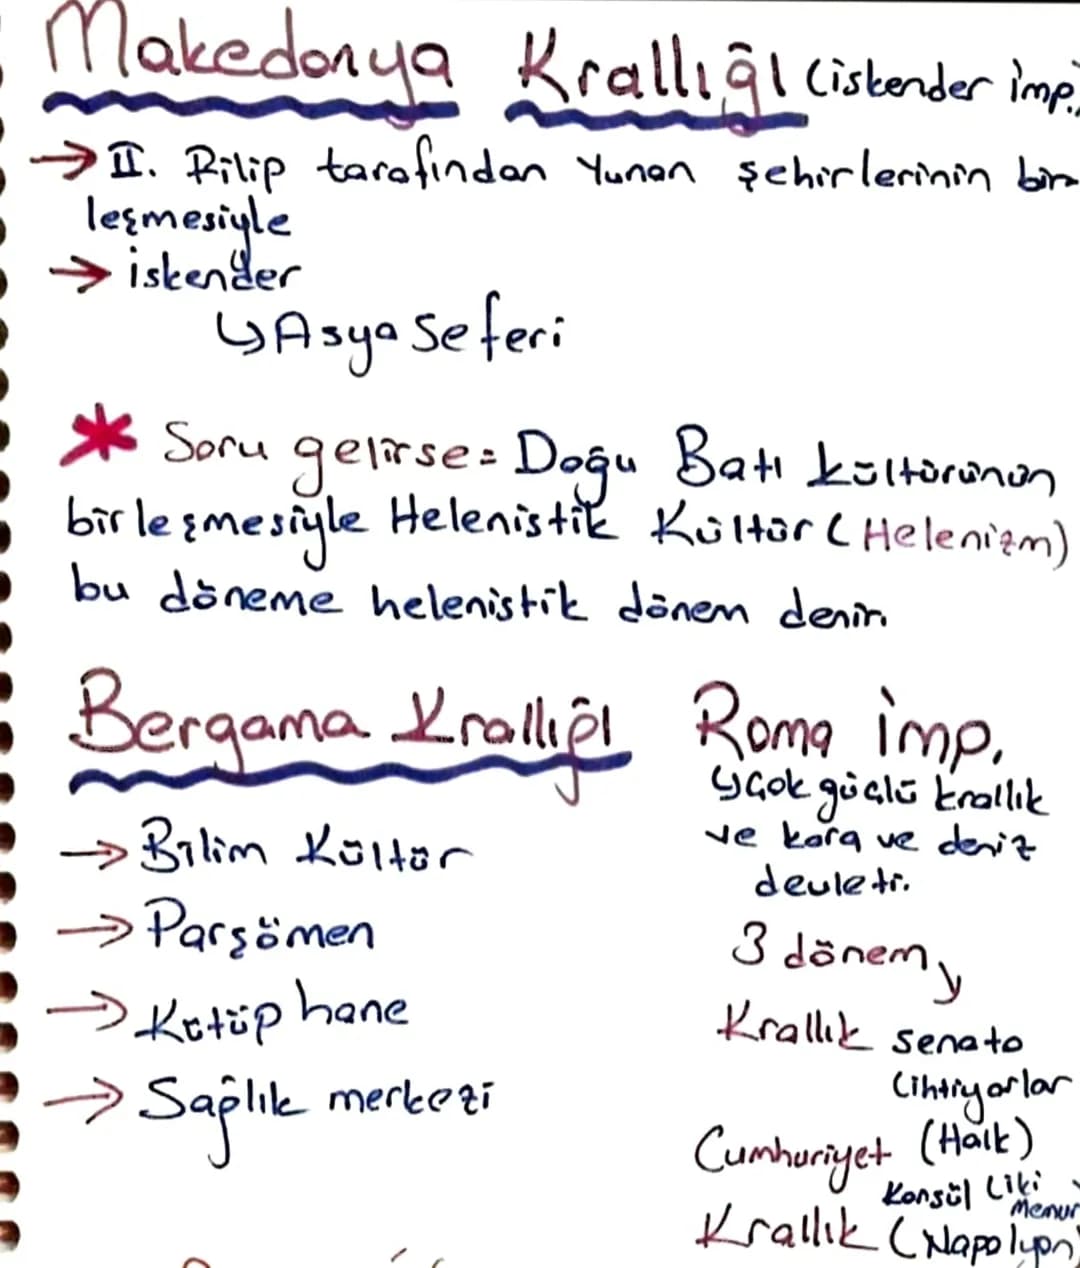 Makedonya Krallığı (iskender imp.)
→ II. Filip tarafından Yunan şehirlerinin bir
leşmesiyle
→ iskender
↳ Asya Seferi
* Soru gelirse = Doğu Batı kültürünün
birleşmesiyle Helenistik Kültür (Helenizm)
bu döneme helenistik dönem denir.
Bergama Krallığı
→ Bilim Kültür
→ Parşömen
→ Kütüphane
→ Sağlık merkezi
Roma imp.
↳ Çok güçlü krallık
ve kara ve deniz
devleti.
3 dönem
Krallık senato
(ihtiyarlar
Cumhuriyet (Halk)
Konsül (iki
Memur
Krallık (Napolyon)